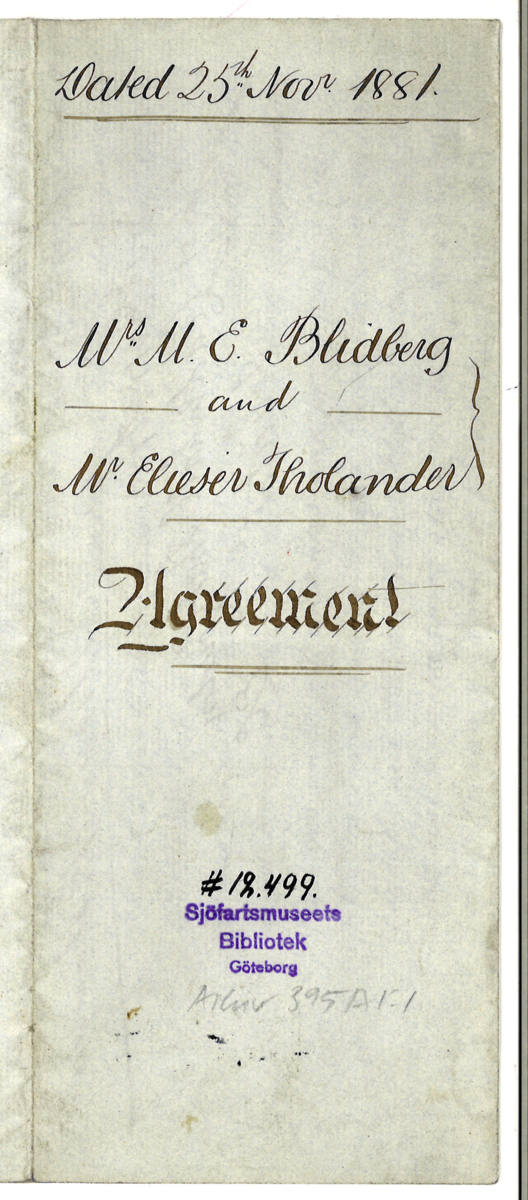 Dated 25th Novr. 1881.
Mrs M. E. Blidberg
and
Mr. Elieser Tholander
Agreement
# 12.499.
Sjöfartsmuseets
Bibliotek
Göteborg
395 A